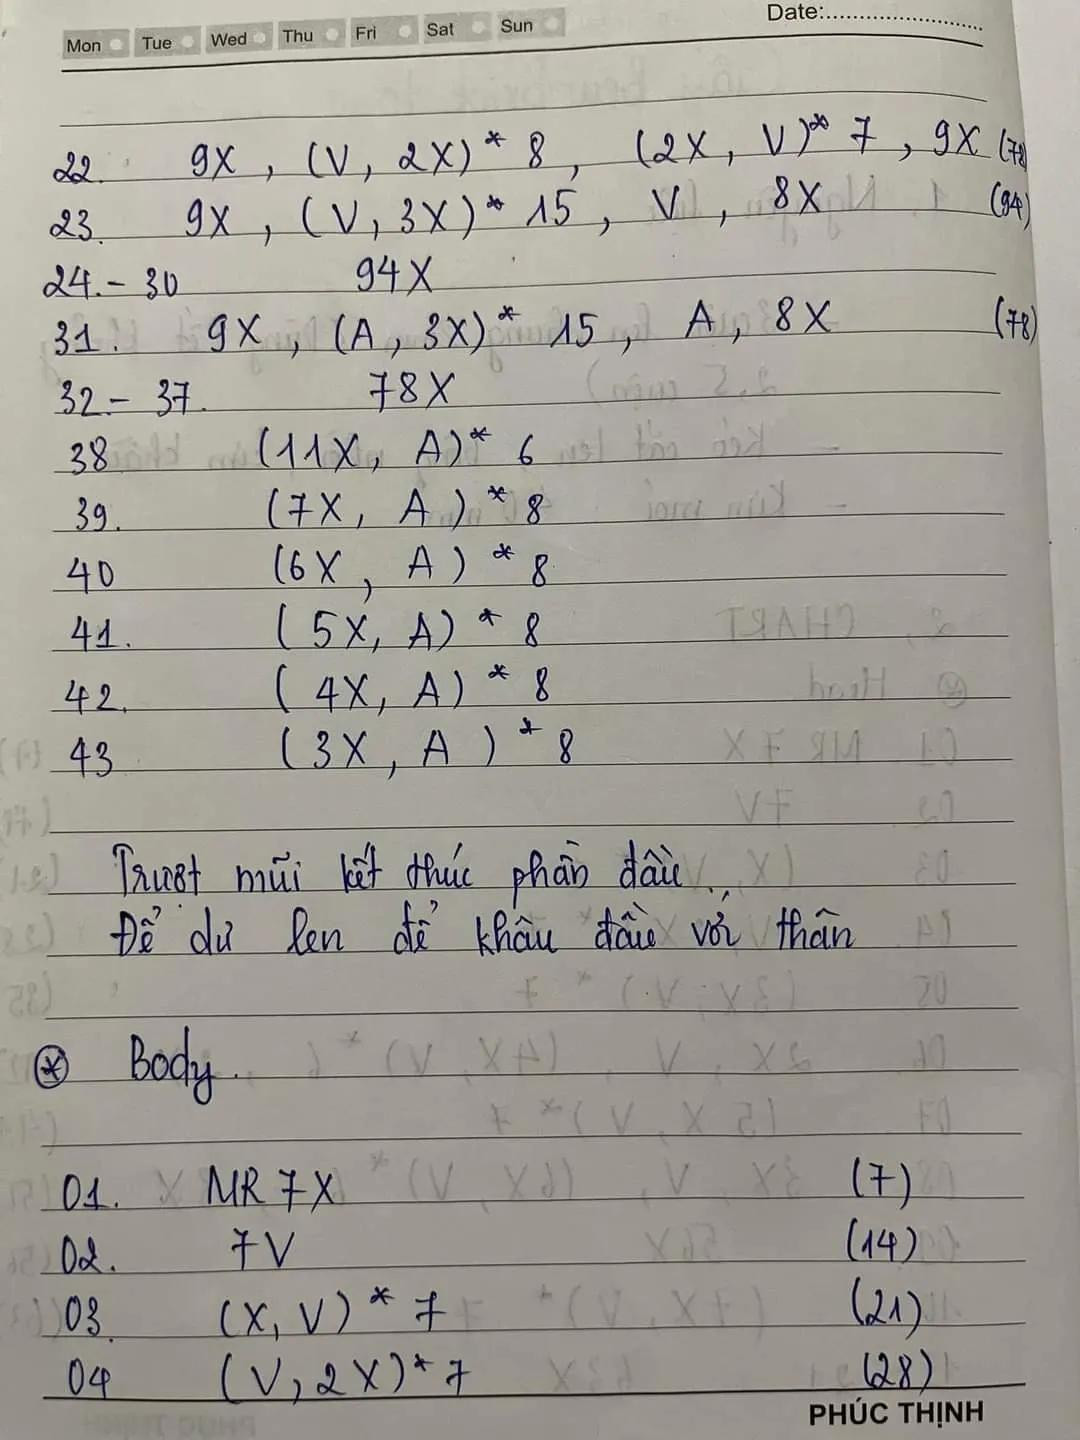 Mon Tue Wed Thu Fri Sat Sun Date:
22. 9X, (V, 2X)* 8, (2X, V)* 7, 9X (78)
23. 9X, (V, 3X)* 15, V, 8X (94)
24.- 30 94X
31. 9X, (A, 3X)* 15, A, 8X (78)
32.- 37. 78X
38 (11X, A)* 6
39. (7X, A)* 8
40 (6X, A)* 8
41. (5X, A)* 8
42. (4X, A)* 8
43 (3X, A)* 8
Trượt mũi kết thúc phần đầu..
Để dư len để khâu đầu với thân
* Body.
01. MR 7X (7)
02. 7V (14)
03. (X, V)* 7 (21)
04 (V, 2X)* 7 (28)
PHÚC THỊNH